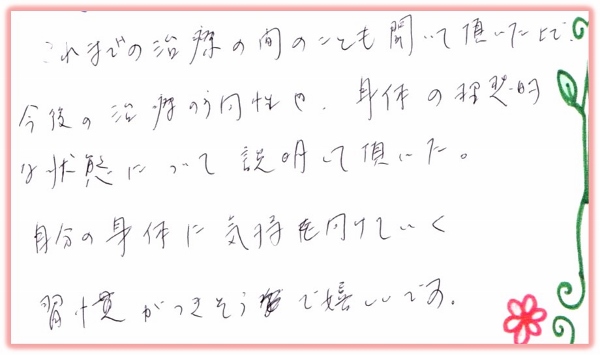 これまでの治療の間のことも聞いて頂いた上で、
今後の治療の方向性や、身体の理想的
な状態について説明して頂いた。
自分の身体に気持を向けていく
習慣がつきそうで嬉しいです。